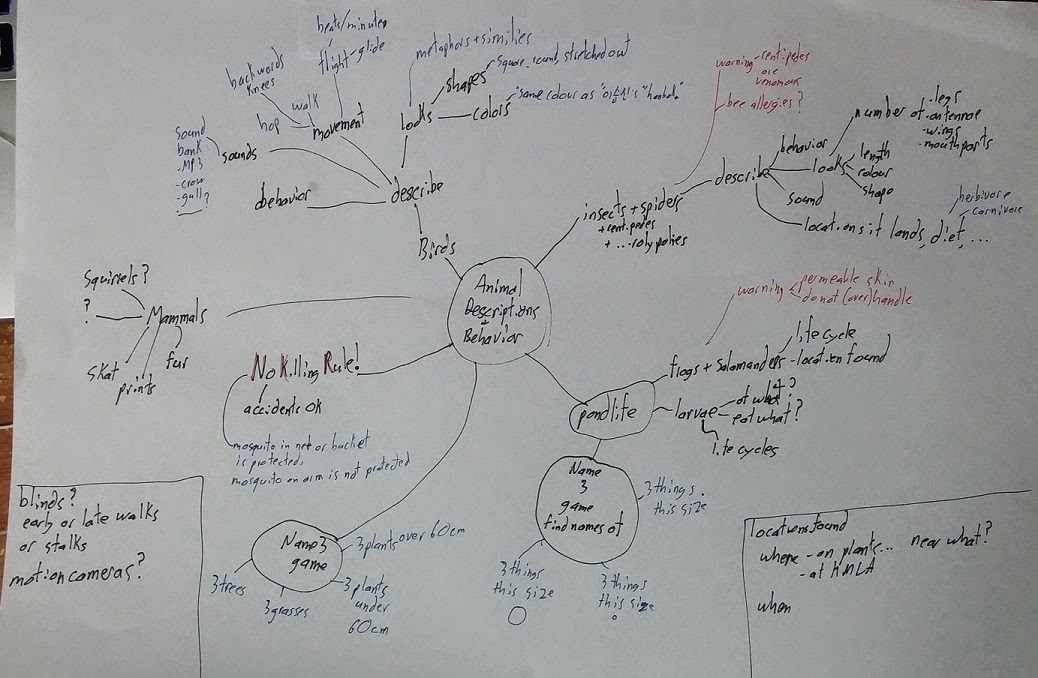 beats/minute
flight - glide
backwords
knees
walk
hop
movement
metaphors + similies
shapes
square, round, stretched out
looks
colors
same colour as "이순신's "hanbok".
sound
bank
.MP3
-crow
-gull
?
sounds
behavior
describe
Birds
warning - centipedes
are
venomous
bee allergies?
insects + spiders
+ centipedes
+ ... roly polies
describe
behavior
looks
number of
.legs
.antennae
-wings
-mouthparts
length
colour
shape
sound
locations it lands, diet, ...
herbivore
carnivore
Squirrels?
?
Mammals
skat
prints
fur
Animal
Descriptions
+
Behavior
No Killing Rule!
accidents ok
mosquito in net or bucket
is protected,
mosquito on arm is not protected
warning
permeable skin
do not (over)handle
frogs + Salamanders
life cycle
-location found
pondlife
larvae
of what?
eat what?
life cycles
Name
3
game
find names of
3 things
this size
3 things
this size
3 things
this size
Name 3
game
3 plants over 60cm
3 trees
3 grasses
3 plants
under
60cm
blinds?
early or late walks
or stalks
motion cameras?
locations found
where - on plants... near what?
- at KMLA
when